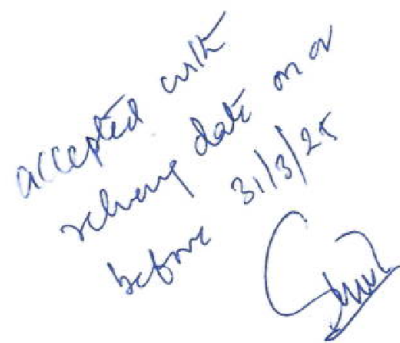 accepted with
relieving date on or
before 31/3/25